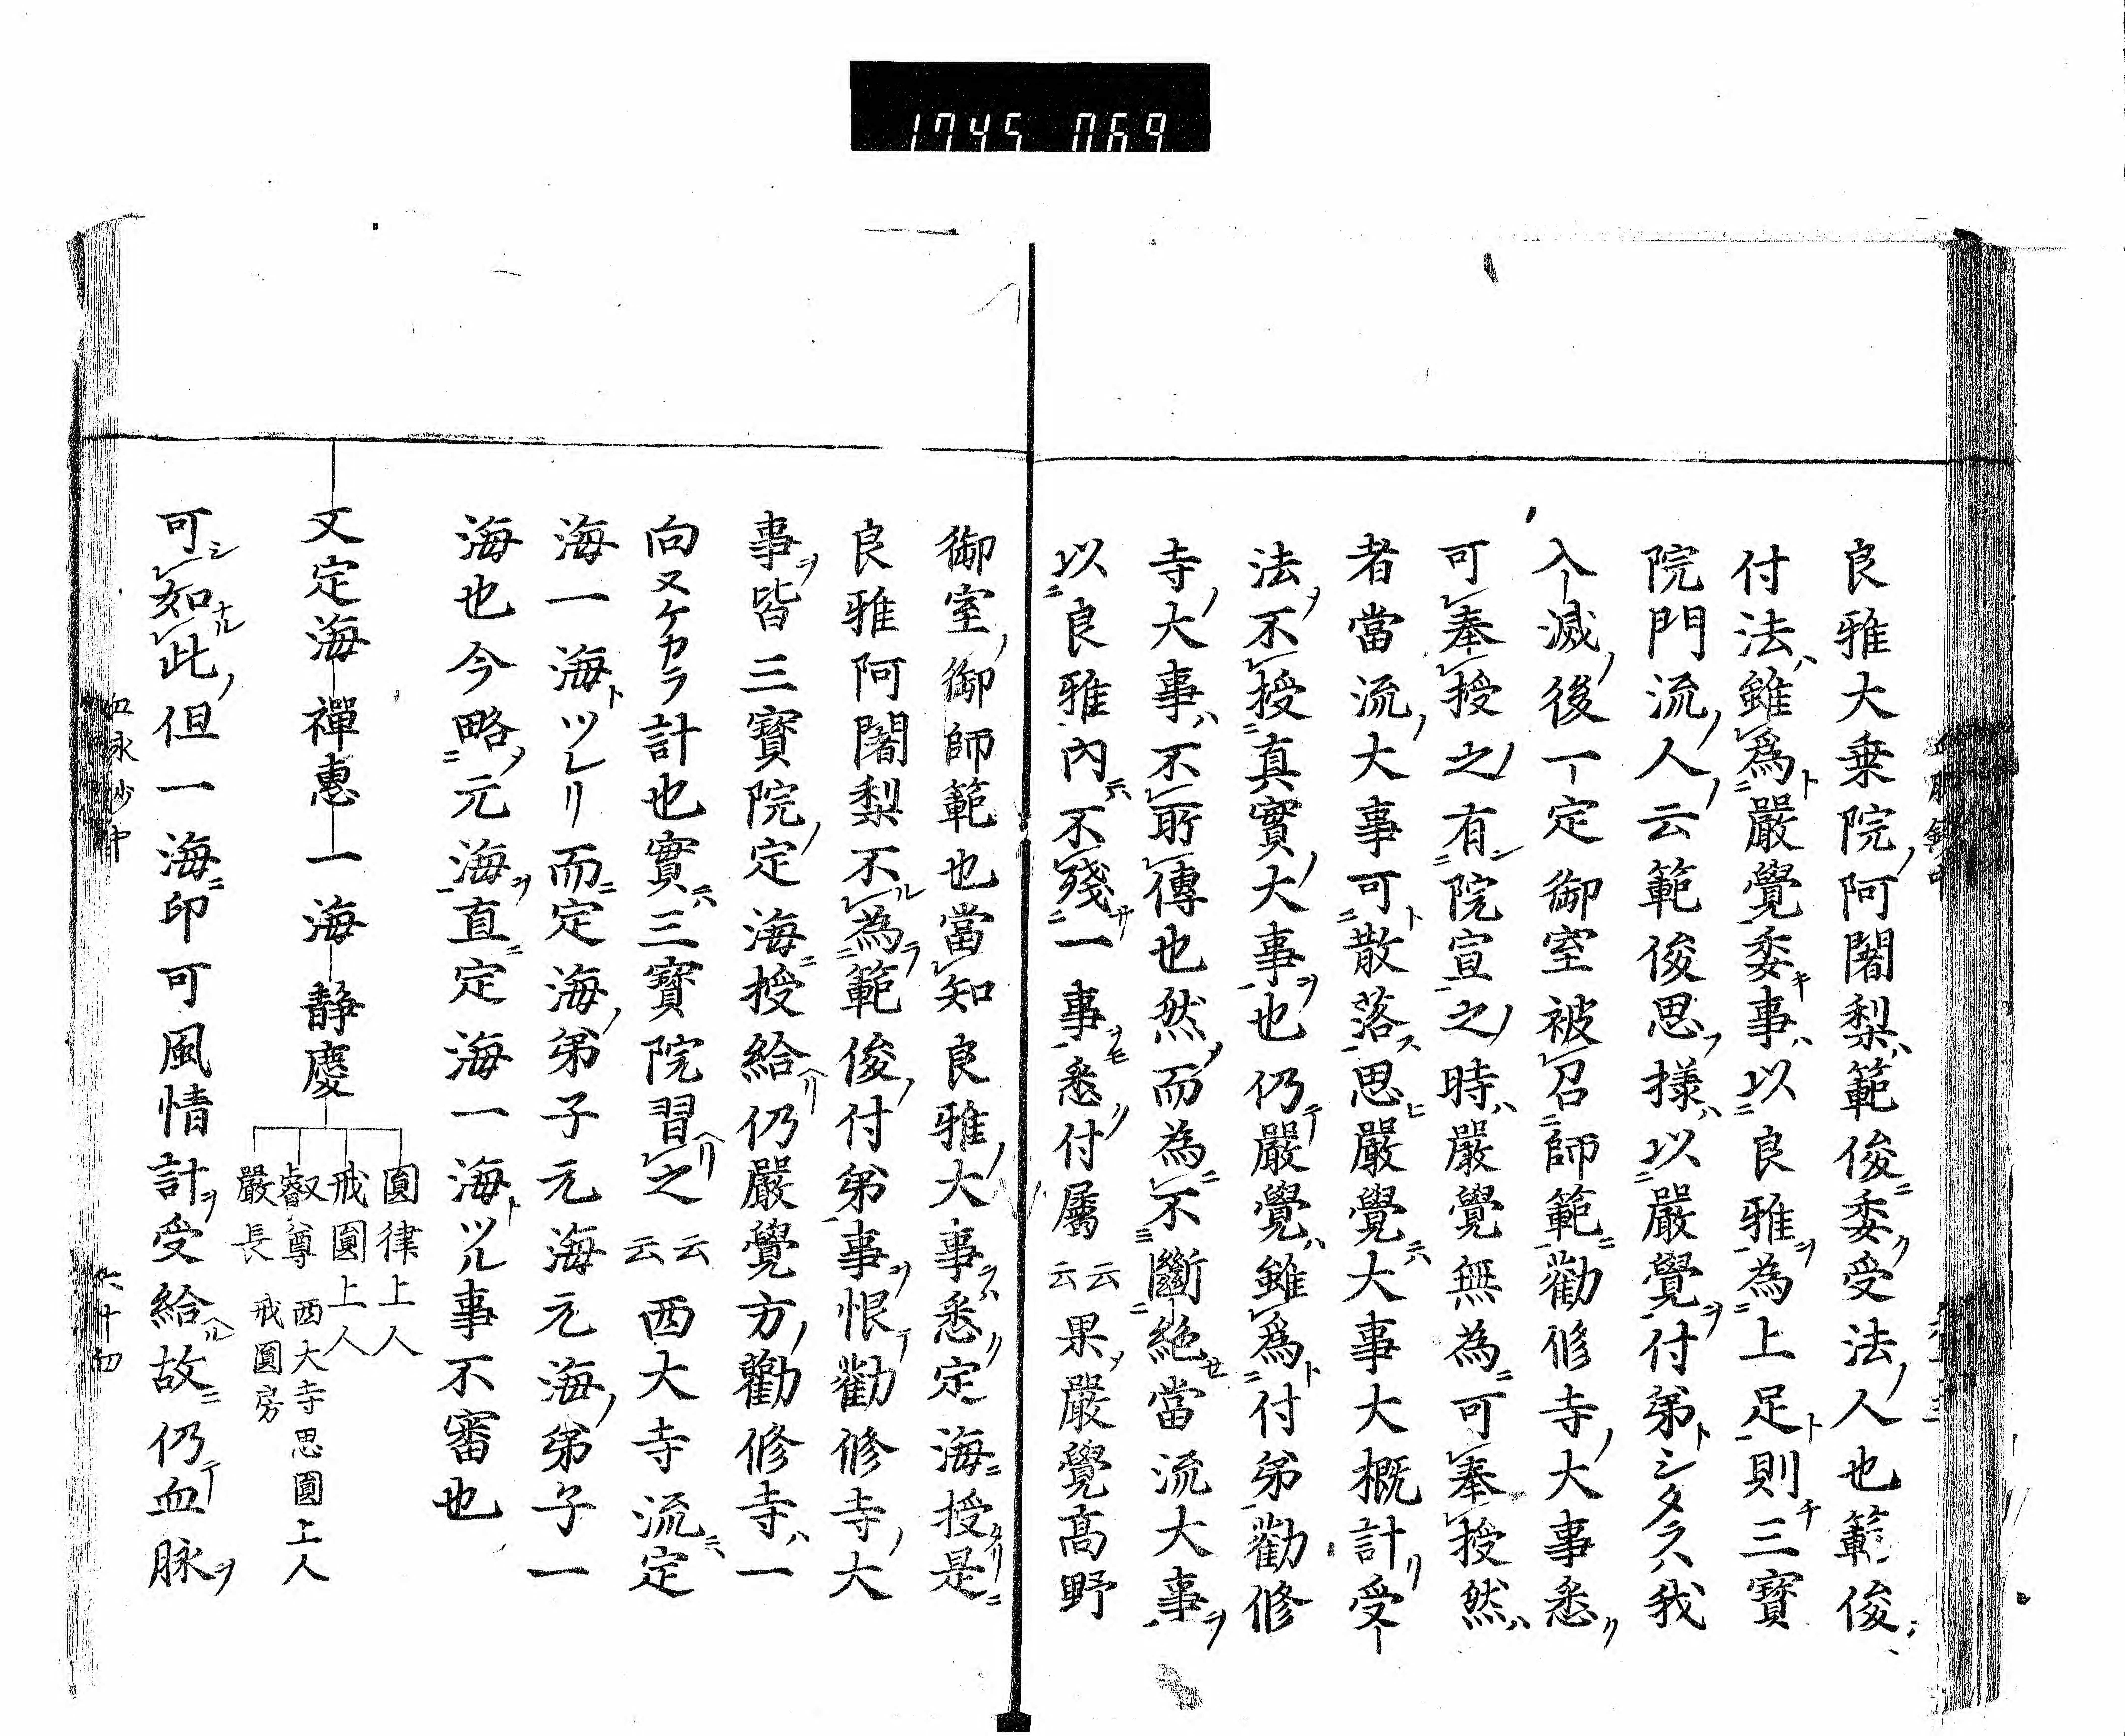 1745 069
良雅大乗院ノ阿闍梨ハ範俊ニ委ク受法ノ人也範俊
付法ハ雖為ト嚴覺委キ事ハ以良雅ヲ為上足ト則チ三寳
院門流ノ人ノ云範俊思フ様ハ以嚴覺ヲ付弟トシタラハ我
入滅ノ後一定御室被召師範ニ勸修寺ノ大事悉ク
可奉授之有シ院宣之時ハ嚴覺無為ニ可奉授然ハ
者當流ノ大事可ト散落ス思ヒ嚴覺ニハ大事大概計リ受
法ノ不授真實ノ大事ヲ也仍テ嚴覺ハ雖為ト付弟勸修
寺ノ大事ハ不所傳也然而為ニ不斷絶セ當流大事ヲ
以良雅内ニハ不殘サ一事ヲモ悉ク付屬云云果メ嚴覺高野
御室ノ御師範也當知良雅ノ大事ヲハ悉ク定海ニ授タリ是ニ
良雅阿闍梨不ル為ラ範俊ノ付弟事ヲ恨テ勸修寺ノ大
事ヲ皆三寳院ノ定海ニ授給ヘリ仍嚴覺方ノ勸修寺ハ一
向ヌケカラ計也實ニハ三寳院習ヘリ之云云西大寺流ニハ定
海一海トツレリ而ニ定海ノ弟子元海元海ノ弟子一
海也今略メ元海ヲ直ニ定海一海トツル事不審也
又定海 禪惠 一海 静慶
圓律上人
戒圓上人
叡尊 西大寺思圓上人
嚴長 戒圓房
可シ如ナル此ノ但一海ニ印可風情計ヲ受給ヘル故ニ仍テ血脉ヲ
六十四